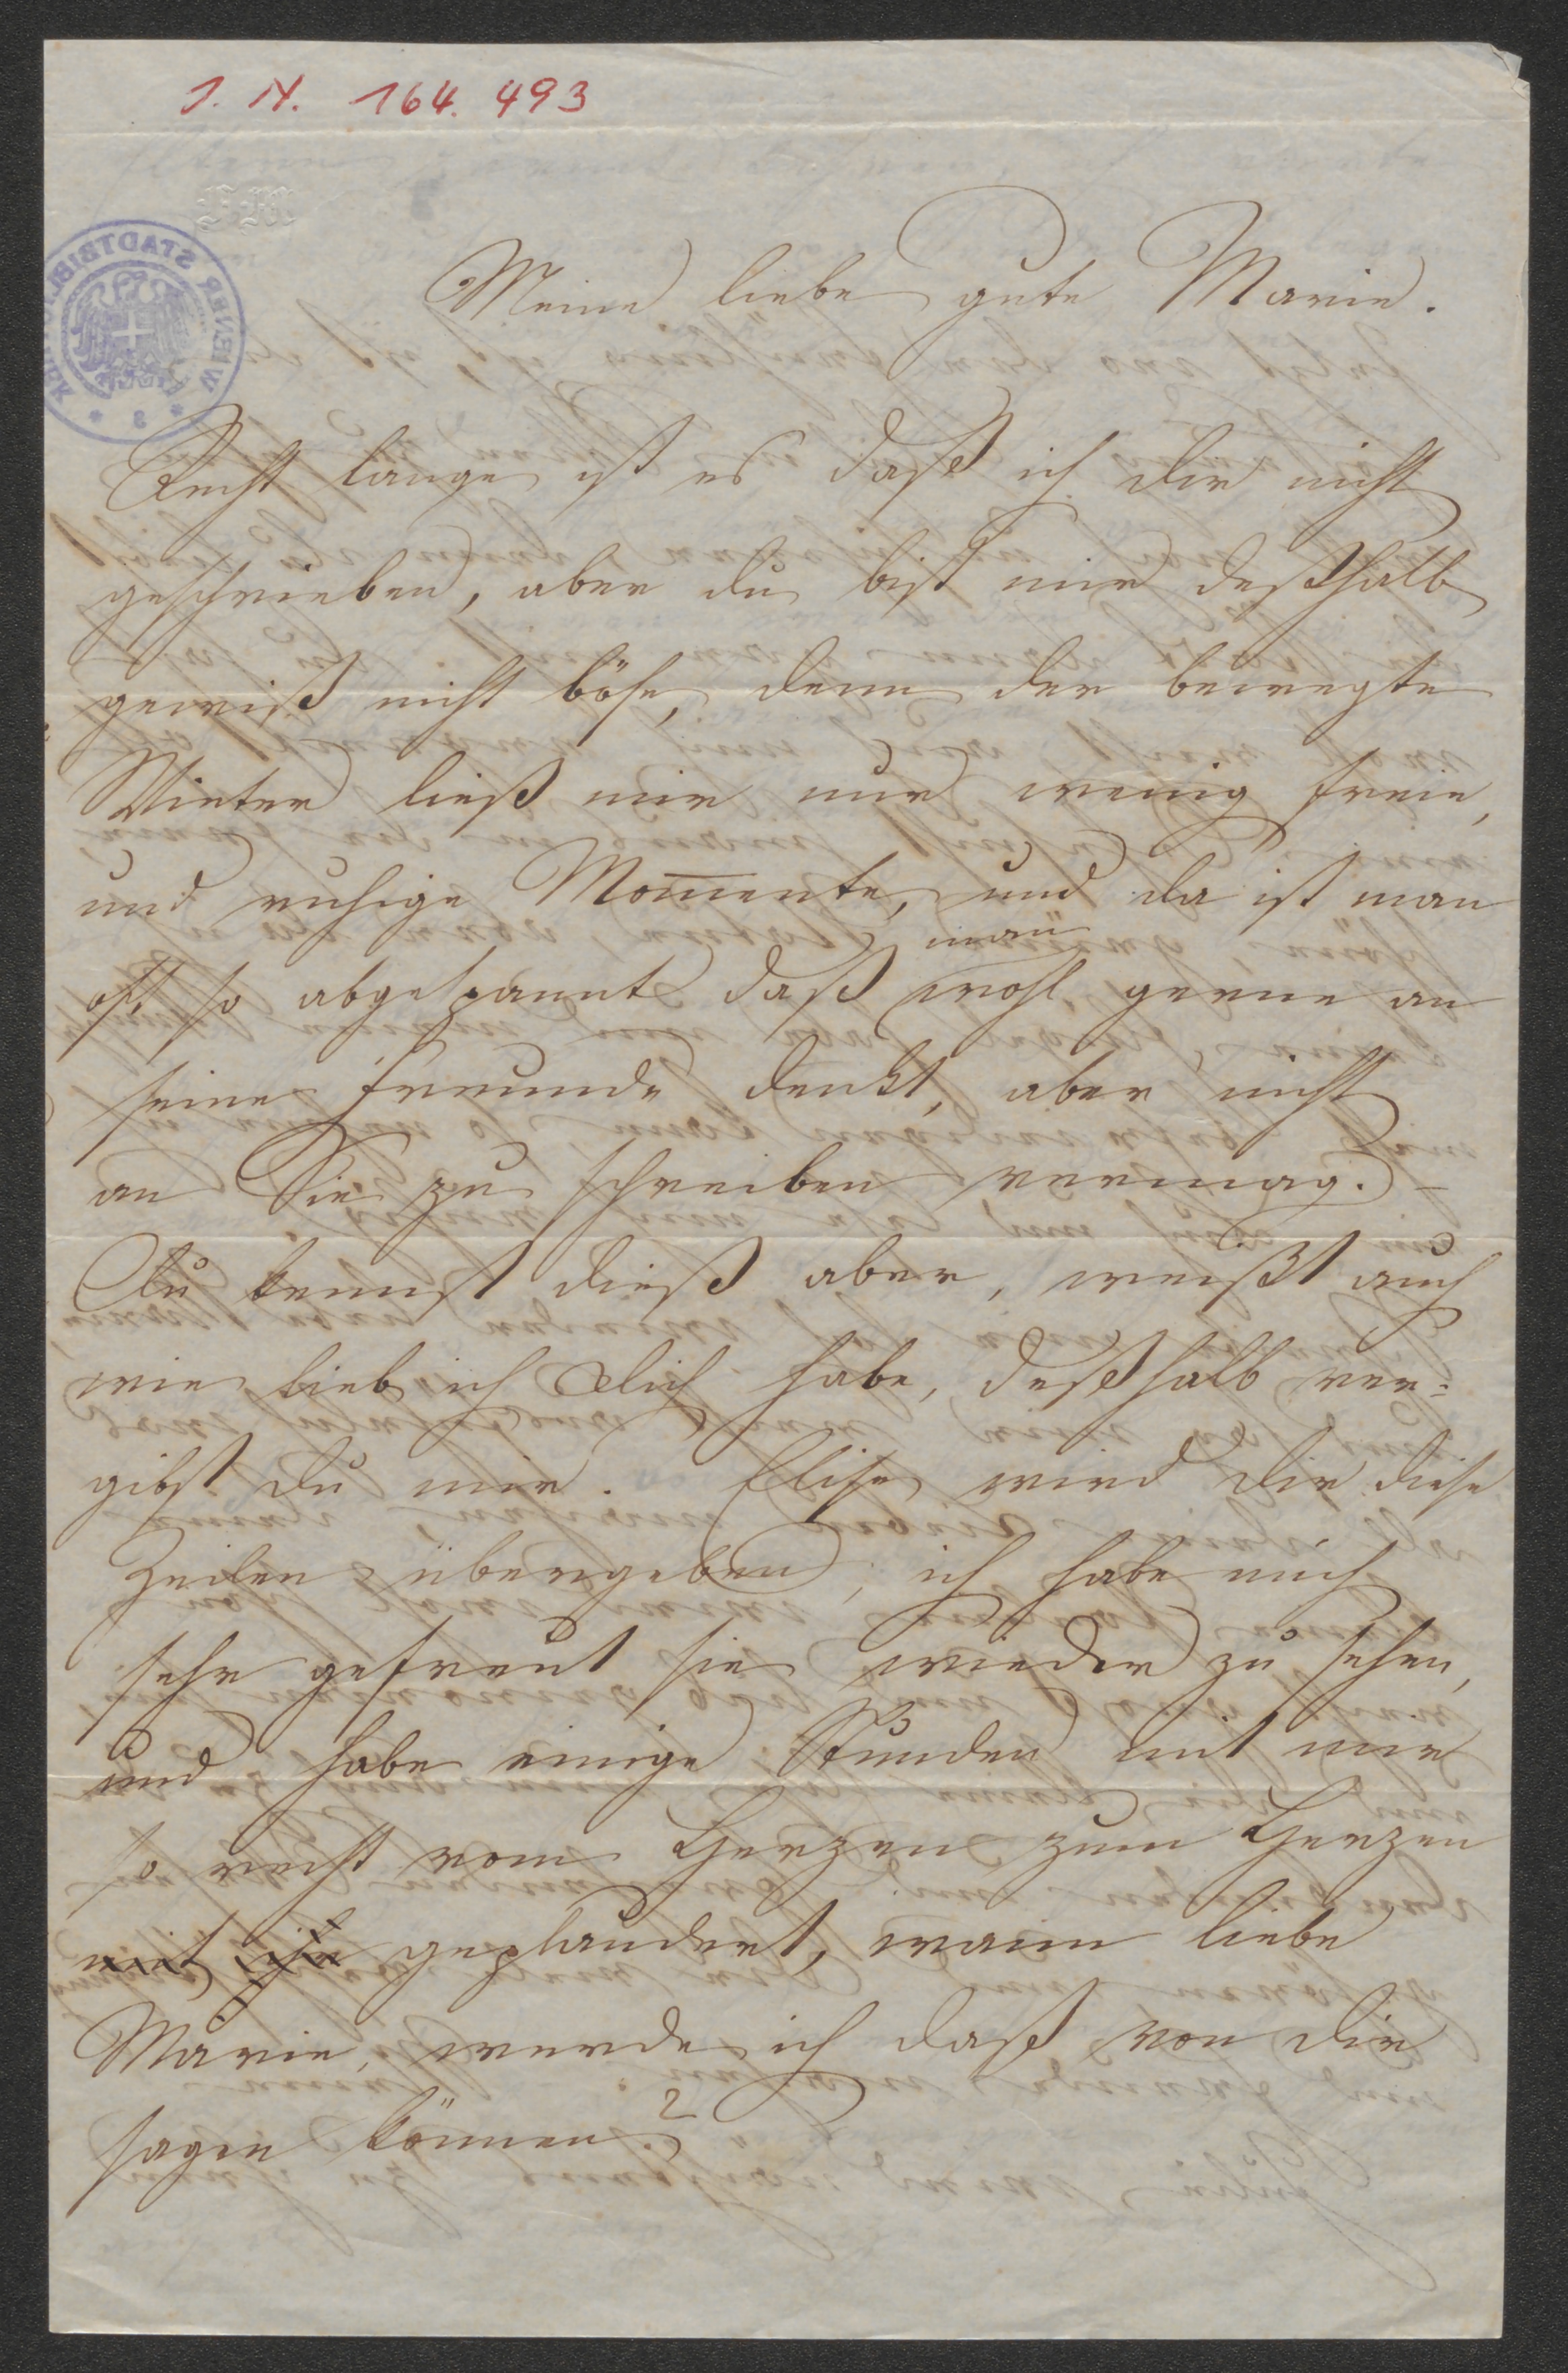 J. N. 164.493
Meine liebe gute Marie.
Recht lange ist es daß ich dir nicht
geschrieben, aber du bist mir deßhalb
gewiß nicht böse, denn der bewegte
Winter ließ mir nur wenig freie,
und ruhige Momente, und da ist man
oft so abgespannt daß man wohl gerne an
seine Freunde denkt, aber nicht
an Sie zu schreiben vermag. –
Du kennst dieß aber, weißt auch
wie lieb ich Dich habe, deßhalb ver=
gibst du mir. Elise wird dir diese
Zeilen übergeben, ich habe mich
sehr gefreut sie wieder zu sehen,
und habe einige Stunden mit mir
so recht vom Herzen zum Herzen
mit ihr geplaudert, wann liebe
Marie, werde ich daß von dir
sagen können?